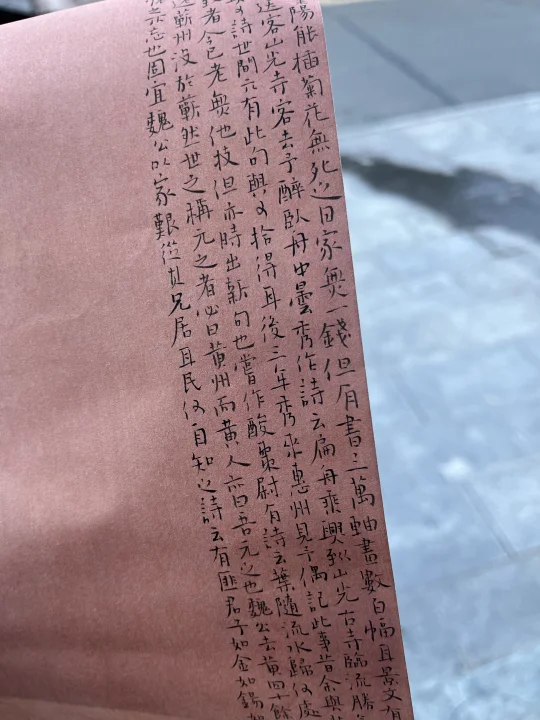 陽能插菊花無死之日家無一錢但有書三萬軸畫數百幅耳景文有
送客山光寺客去予醉臥舟中曇秀作詩云扁舟乘興到山光古寺臨流勝
詩世間亦有此句與又拾得耳後三年秀來惠州見予偶記此事昔余與
者今已老無他技但亦時出新句也嘗作酸棗尉有詩云葉隨流水歸何處
遷蘄州沒於蘄然世之稱元之者必曰黃州而黃人亦曰吾元之也魏公去黃四十餘
忘也固宜魏公以家艱從其兄居耳民何自知之詩云有匪君子如金如錫